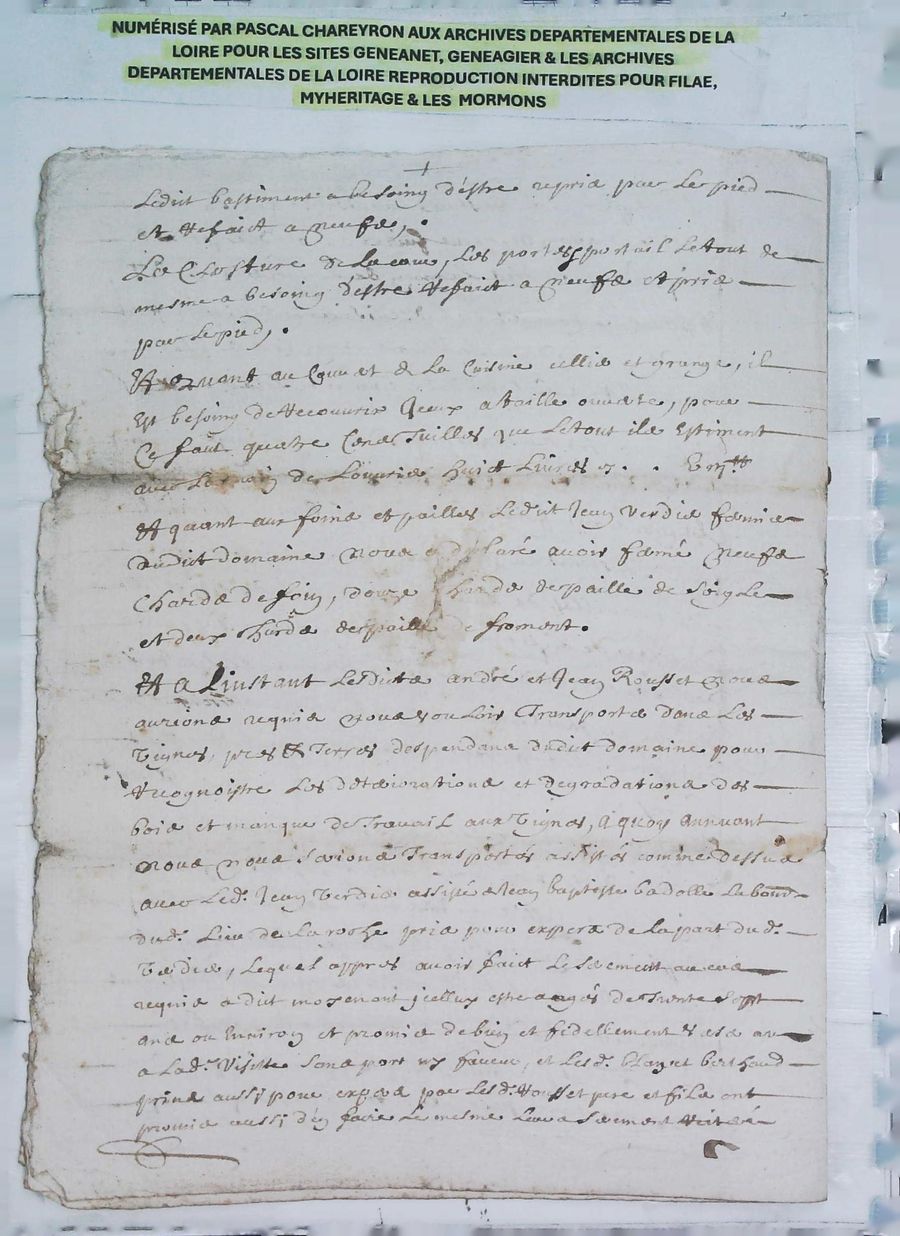 NUMÉRISÉ PAR PASCAL CHAREYRON AUX ARCHIVES DEPARTEMENTALES DE LA
LOIRE POUR LES SITES GENEANET, GENEAGIER & LES ARCHIVES
DEPARTEMENTALES DE LA LOIRE REPRODUCTION INTERDITES POUR FILAE,
MYHERITAGE & LES MORMONS
Ledit bastiment a besoing d'estre repris par le pied
et Refaict a neufs,
La Closture de la cour, les portes portail le tout de
mesme a besoing d'estre Refaict a neufs et pris
par le pied.
Et quant au Couvert de la Cuisine cellier et grange, il
Est besoing de Recouvrir Iceux a taille ouverte, pour
Ce faut quatre Cens Tuilles que le tout ils Estiment
avec la main de L'ouvrier huict Livres
Et quant aux foins et pailles Ledit Jean Verdier fermier
dudict domaine nous a declaré avoir fermé neufs
Chards de foin, douze Chards de paille de Seigle
et deux Chards de paille de froment.
Et a L'instant Lesdicts andré et Jean Rousset nous
aurions requis nous vouloir Transporter dans Les
Vignes, pres & Terres despendans dudit domaine pour
Recognoistre Les déteriorations et degradations des
bois et manque de Travail aux Vignes, a quoy annuant
nous nous serions Transportés assistés comme dessus
avec Led. Jean Verdier assisté de Jean baptiste badolle Labour
dud. Lieu de la roche pris pour expers de la part dud.
Verdier, Lequel appres avoir faict le serement au cas
requis a dit moyenant jcelluy estre aagés de Trente Sept
ans ou Environ et promis de bien et fidellement
a Lad. Visitte sans port ny faveur, et Les d. et berthaud
prins aussi pour expers par Les d. Rousset pere et fils ont
promis aussi d'en faire le mesme serement